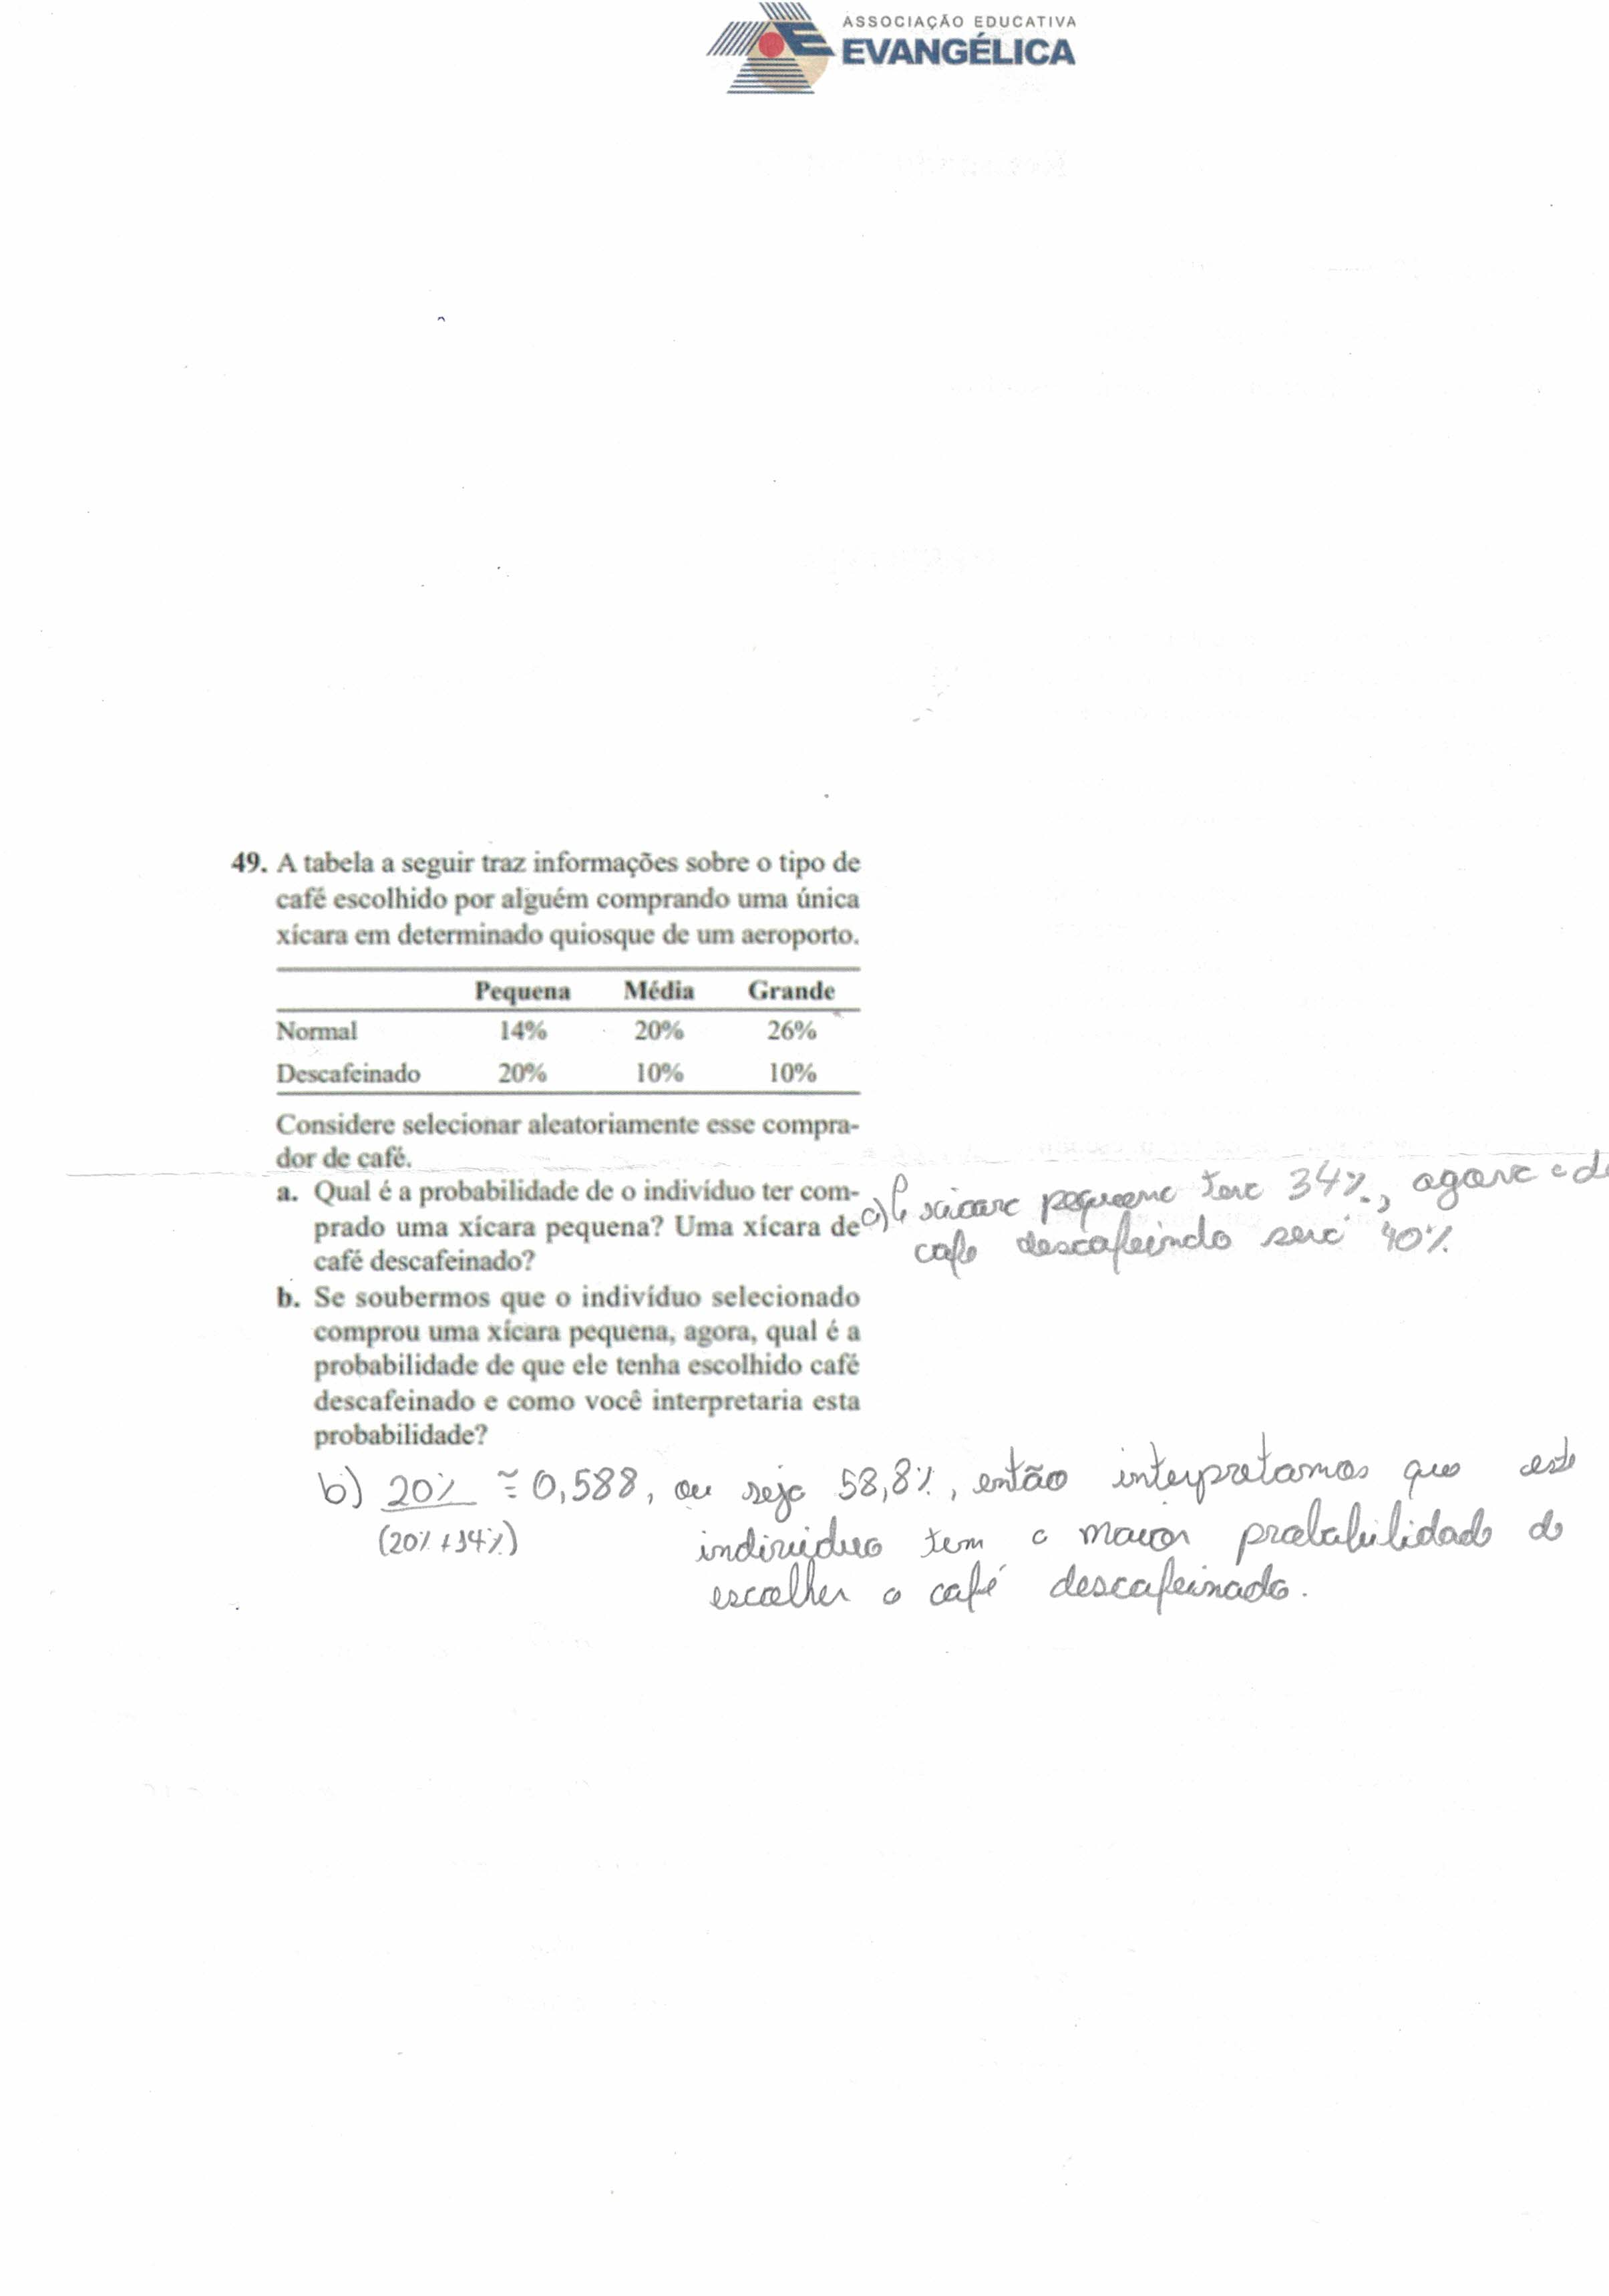 ASSOCIAÇÃO EDUCATIVA
EVANGÉLICA
49. A tabela a seguir traz informações sobre o tipo de
café escolhido por alguém comprando uma única
xícara em determinado quiosque de um aeroporto.
Pequena Média Grande
Normal 14% 20% 26%
Descafeinado 20% 10% 10%
Considere selecionar aleatoriamente esse compra-
dor de café.
a. Qual é a probabilidade de o indivíduo ter com-
prado uma xícara pequena? Uma xícara de
café descafeinado?
a) xicara pequena tera 34%, agora a do
cafe descafeindo sera 40%
b. Se soubermos que o indivíduo selecionado
comprou uma xícara pequena, agora, qual é a
probabilidade de que ele tenha escolhido café
descafeinado e como você interpretaria esta
probabilidade?
b) 20% ≅ 0,588, ou seja 58,8%, então interpretamos que este
(20% + 14%) individuo tem a maior probabilidade de
escolher o café descafeinado.